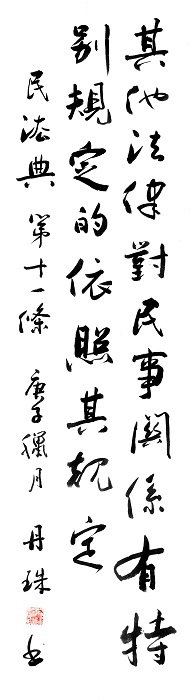 其他法律對民事關係有特
別規定的依照其規定
民法典 第十一條 庚子臘月 丹珠 书